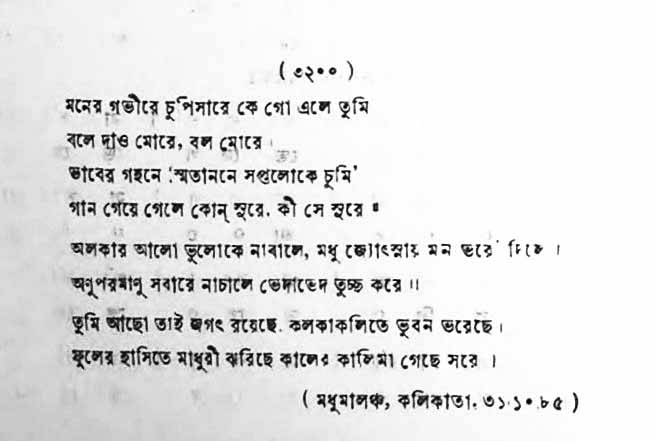 ( ৩২০০ )
মনের গভীরে চুপিসারে কে গো এলে তুমি
বলে দাও মোরে, বল মোরে ।
ভাবের গহনে স্মিতাননে সপ্তলোকে চুমি'
গান গেয়ে গেলে কোন্ সুরে, কী সে সুরে ॥
অলকার আলো ভুলোকে নাবালে, মধু জ্যোৎস্নায় মন ভরে দিলে ।
অনুপরমানু সবারে নাচালে ভেদাভেদ তুচ্ছ করে ॥
তুমি আছো তাই জগৎ রয়েছে, কলকাকলিতে ভুবন ভরেছে ।
ফুলের হাসিতে মাধুরী ঝরিছে কালের কালিমা গেছে সরে ।
( মধুমালঞ্চ, কলিকাতা, ৩১.১০.৮৫ )